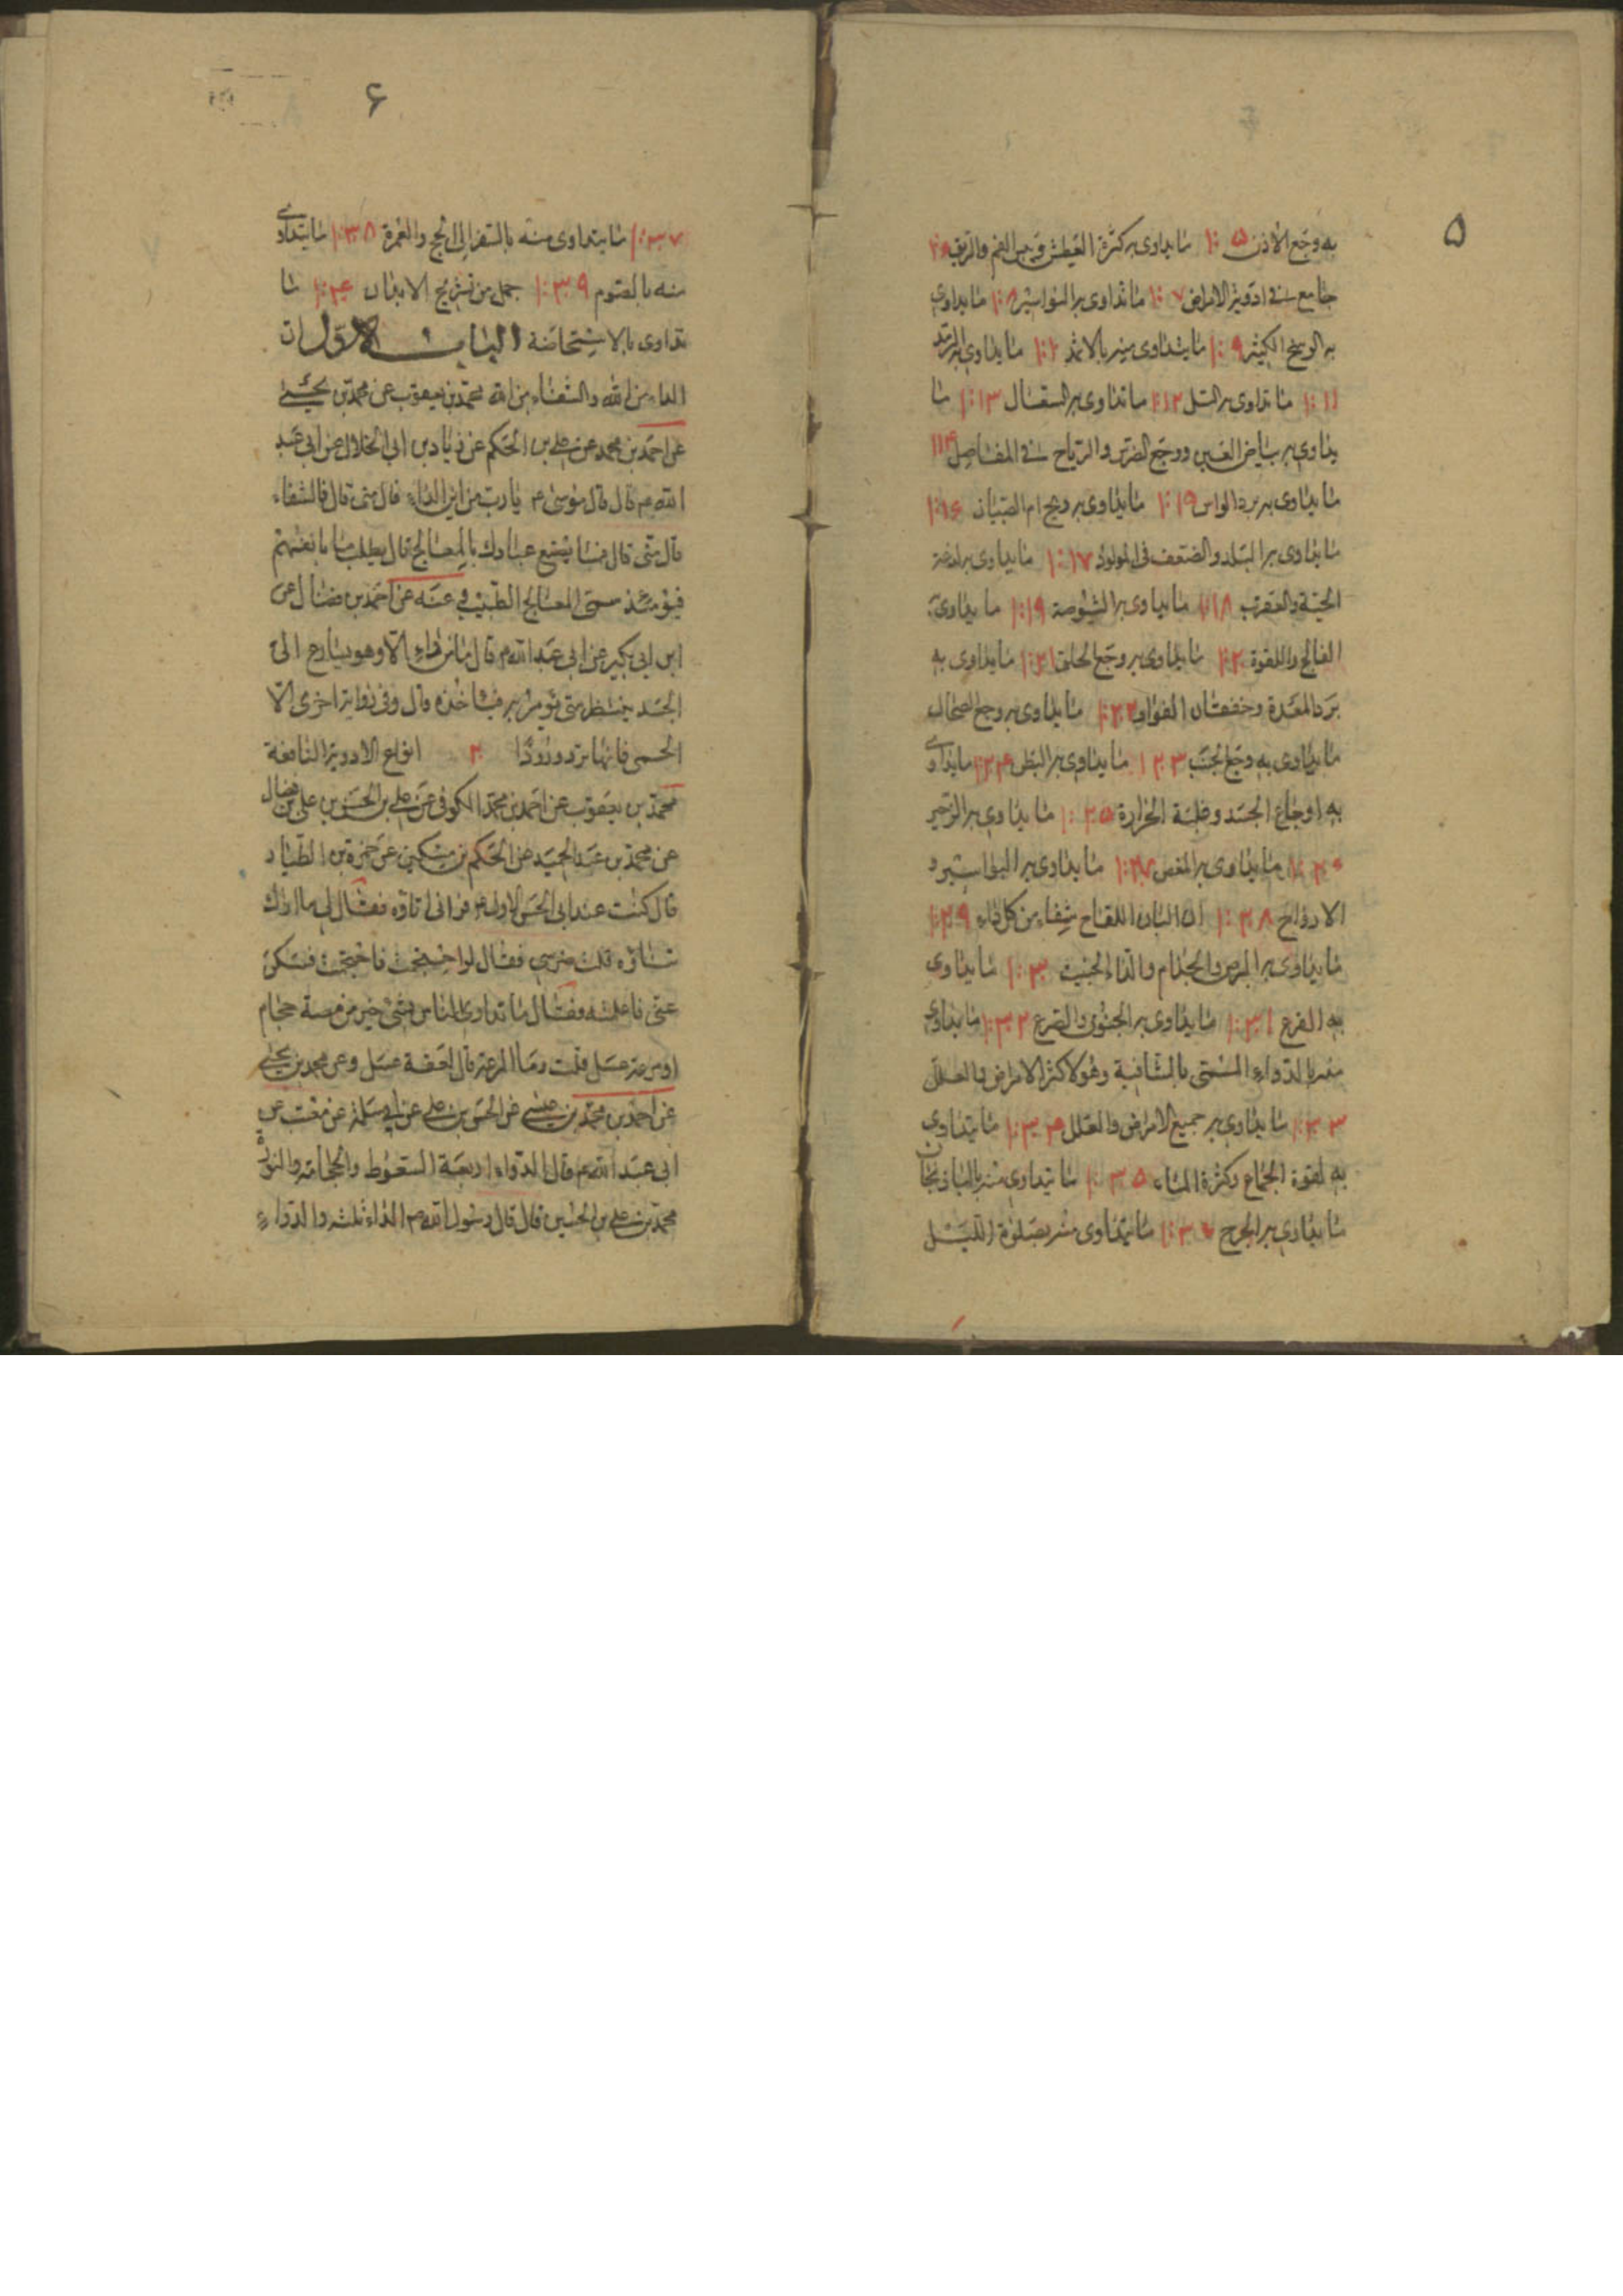 ۵
به وجع الاذن ۱۰۵ ما يداوى به كثرة العطش و يبس الفم والريق ۱۰۶
جامع فى ادوية الامراض ۱۰۷ ما تداوى به البواسير ۱۰۸ ما يداوى
به الوضح الكثير ۱۰۹ ما يتداوى منه بالاثمد ۱۱۰ ما يداوى به الرمد
۱۱۱ ما تداوى به السل ۱۱۲ ما تداوى به السعال ۱۱۳ ما
يداوى به بياض العين ووجع الضرس والرياح فى المفاصل ۱۱۴
ما يداوى به برد الراس ما يداوى به ريح ام الصبيان ۱۱۶
ما يداوى به البلد والضعف فى المولود ۱۱۷ ما يداوى به لدغة
الحية والعقرب ۱۱۸ ما يداوى به الشوصة ۱۱۹ ما يداوى به
الفالج واللقوة ۱۲۰ ما يداوى به وجع الحلق ۱۲۱ ما يداوى به
برد المعدة وخفقان الفواد ۱۲۲ ما يداوى به وجع الطحال
ما يداوى به وجع الجنب ۱۲۳ ما يداوى به البطن ۱۲۴ ما يداوى
به اوجاع الجسد وغلبة الحرارة ۱۲۵ ما يداوى به الزحير
۱۲۶ ما يداوى به المغص ۱۲۷ ما يداوى به البواسير و
الارواح ۱۲۸ ان البان اللقاح شفاء من كل داء ۱۲۹
ما يداوى به البرص والجذام والداء الخبيث ۱۳۰ ما يداوى
به الفزع ۱۳۱ ما يداوى به الجنون والصرع ۱۳۲ ما يداوى
منه بالدواء المسمى بالشافية وهو لاكثر الامراض والعلل
۱۳۳ ما يداوى به جميع الامراض والعلل ۱۳۴ ما يتداوى
به لقوة الجماع وكثرة الماء ۱۳۵ ما يتداوى منه بالباذنجان
ما يداوى به الجرح ۱۳۶ ما يتداوى منه بصلوة الليل
۶
۱۳۷ ما يتداوى منه بالسفر الى الحج والعمرة ۱۳۸ ما يتداوى
منه بالصوم ۱۳۹ جمل من تشريح الابدان ۱۴۰ ما
تداوى بالاستحاضة الباب الاول ان
الداء من الله والشفاء من الله محمد بن يعقوب عن محمد بن يحيى
عن احمد بن محمد عن على بن الحكم عن زياد بن ابى الحلال عن ابى عبد
الله ع قال قال موسى ع يا رب من اين الداء قال منى قال فالشفاء
قال منى قال فما يصنع عبادك بالمعالج قال يطلب بانفسهم
فيومئذ سمى المعالج الطبيب و عنه عن احمد بن فضال عن
ابن ابى بكير عن ابى عبد الله ع قال ما من داء الا وهو يسارع الى
الجسد ينتظر متى يؤمر به فياخذه قال وفى رواية اخرى الا
الحمى فانها ترد ورودا ۲ انواع الادوية النافعة
محمد بن يعقوب عن احمد بن محمد الكوفى عن على بن الحسن بن على بن فضال
عن محمد بن عبد الحميد عن الحكم بن مسكين عن حمزة بن الطيار
قال كنت عند ابى الحسن الاول ع فرانى اتاوه فقال لى ما لك
تتاوه قلت ضرسى فقال لو احتجمت فاحتجمت فسكن
عنى فاعلمته فقال ما تداوى الناس بشئ خير من مصة حجام
او مزعة عسل قلت وما المزعة قال لعقة عسل وعن محمد بن يحيى
عن احمد بن محمد بن عيسى عن الحسن بن على عن ابى سلمة عن معتب عن
ابى عبد الله ع قال الدواء اربعة السعوط والحجامة والنورة
محمد بن على بن الحسين قال قال رسول الله ص الداء ثلثة والدواء